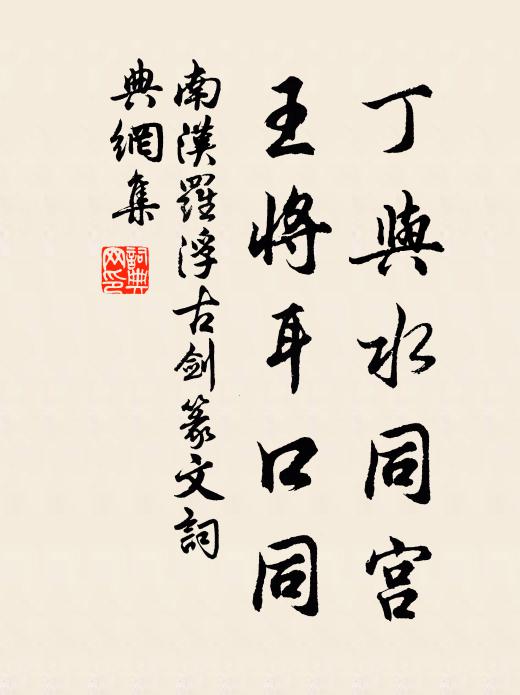 丁與水同宫
王將耳口同
南漢羅浮古劍篆文詞
典網集
詞典網印